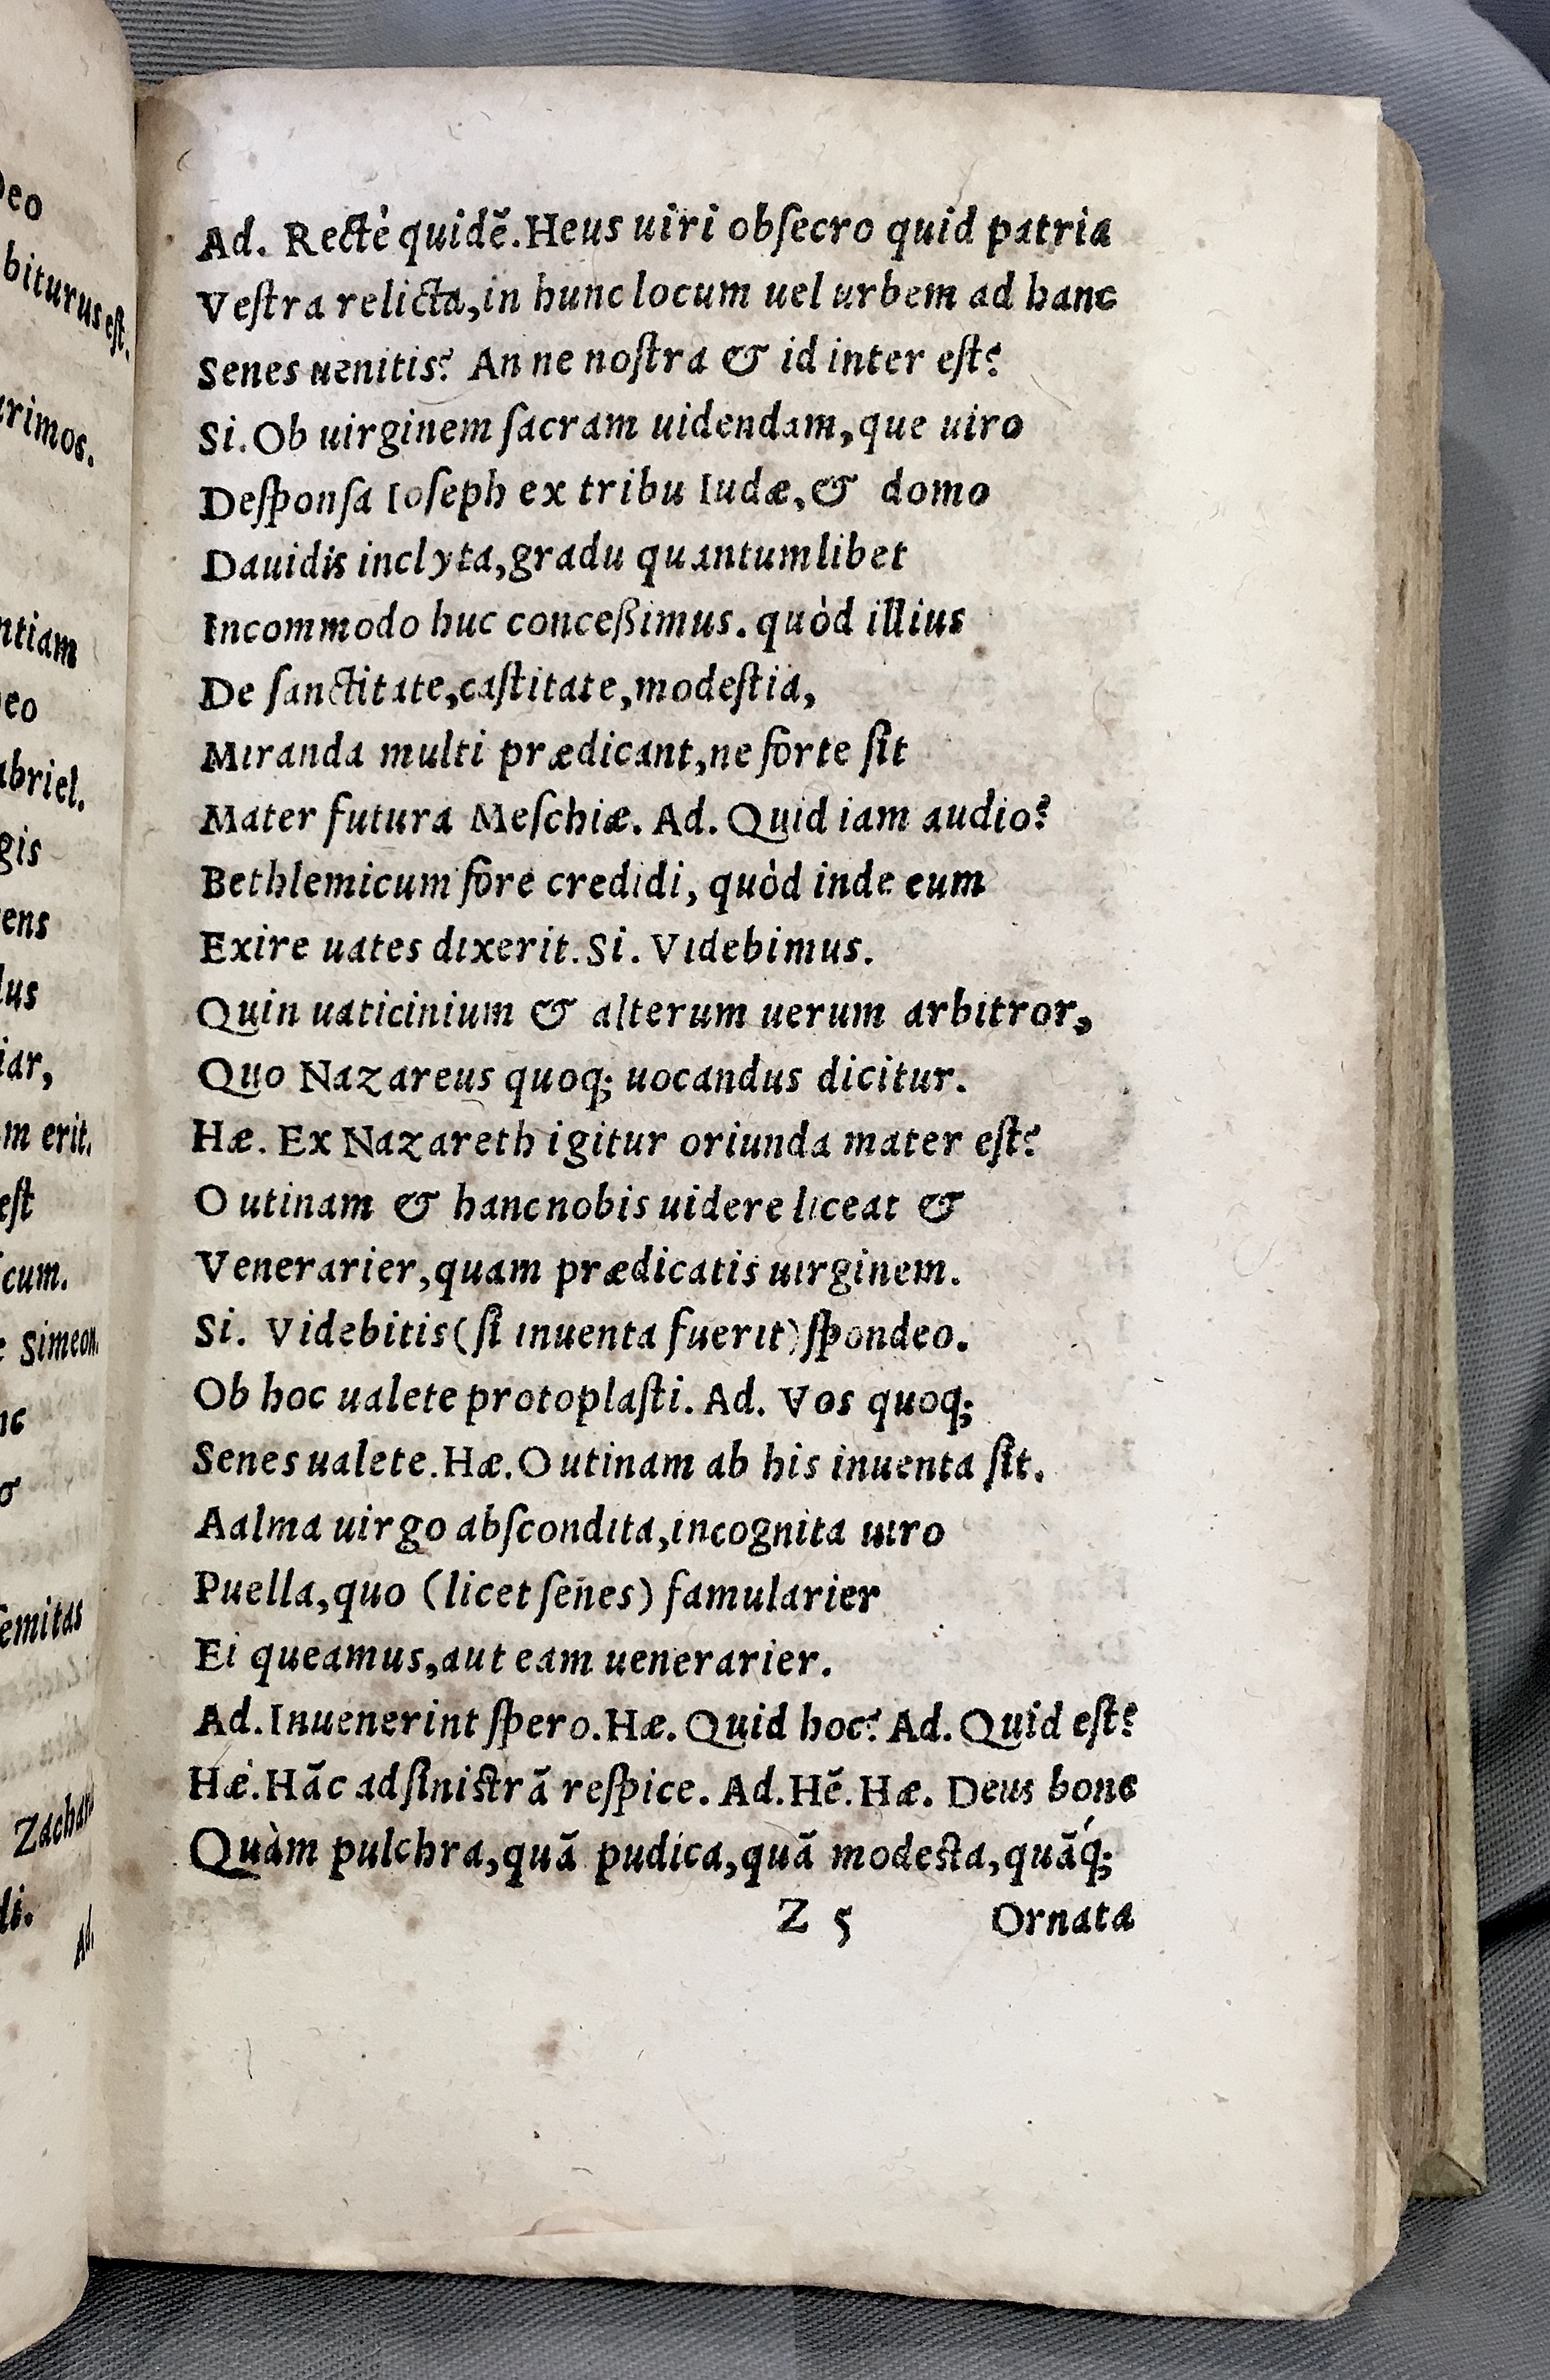 Deo
biturus est.
arimos.
ntiam
Deo
abriel.
gis
ens
lus
iar,
m erit.
est
icum.
e Simeon.
nc
semitas
Zachari
di.
Ad.
Ad. Rectè quidẽ. Heus uiri obſecro quid patria
Veſtra relicta, in hunc locum uel urbem ad hanc
Senes uenitis? An ne noſtra & id inter eſt?
Si. Ob uirginem ſacram uidendam, que uiro
Deſponſa Ioſeph ex tribu Iudæ, & domo
Dauidis inclyta, gradu quantumlibet
Incommodo huc conceßimus. quòd illius
De ſanctitate, caſtitate, modeſtia,
Miranda multi prædicant, ne forte ſit
Mater futura Meſchiæ. Ad. Quid iam audio?
Bethlemicum fore credidi, quòd inde eum
Exire uates dixerit. Si. Videbimus.
Quin uaticinium & alterum uerum arbitror,
Quo Nazareus quoq; uocandus dicitur.
Hæ. Ex Nazareth igitur oriunda mater eſt?
O utinam & hanc nobis uidere liceat &
Venerarier, quam prædicatis uirginem.
Si. Videbitis (ſi inuenta fuerit) ſpondeo.
Ob hoc ualete protoplaſti. Ad. Vos quoq;
Senes ualete. Hæ. O utinam ab his inuenta ſit.
Aalma uirgo abſcondita, incognita uiro
Puella, quo (licet ſenes) famularier
Ei queamus, aut eam uenerarier.
Ad. Inuenerint ſpero. Hæ. Quid hoc? Ad. Quid eſt?
Hæ. Hãc ad ſiniſtrã reſpice. Ad. Hẽ. Hæ. Deus bone
Quàm pulchra, quã pudica, quã modeſta, quãq́;
Z 5 Ornata